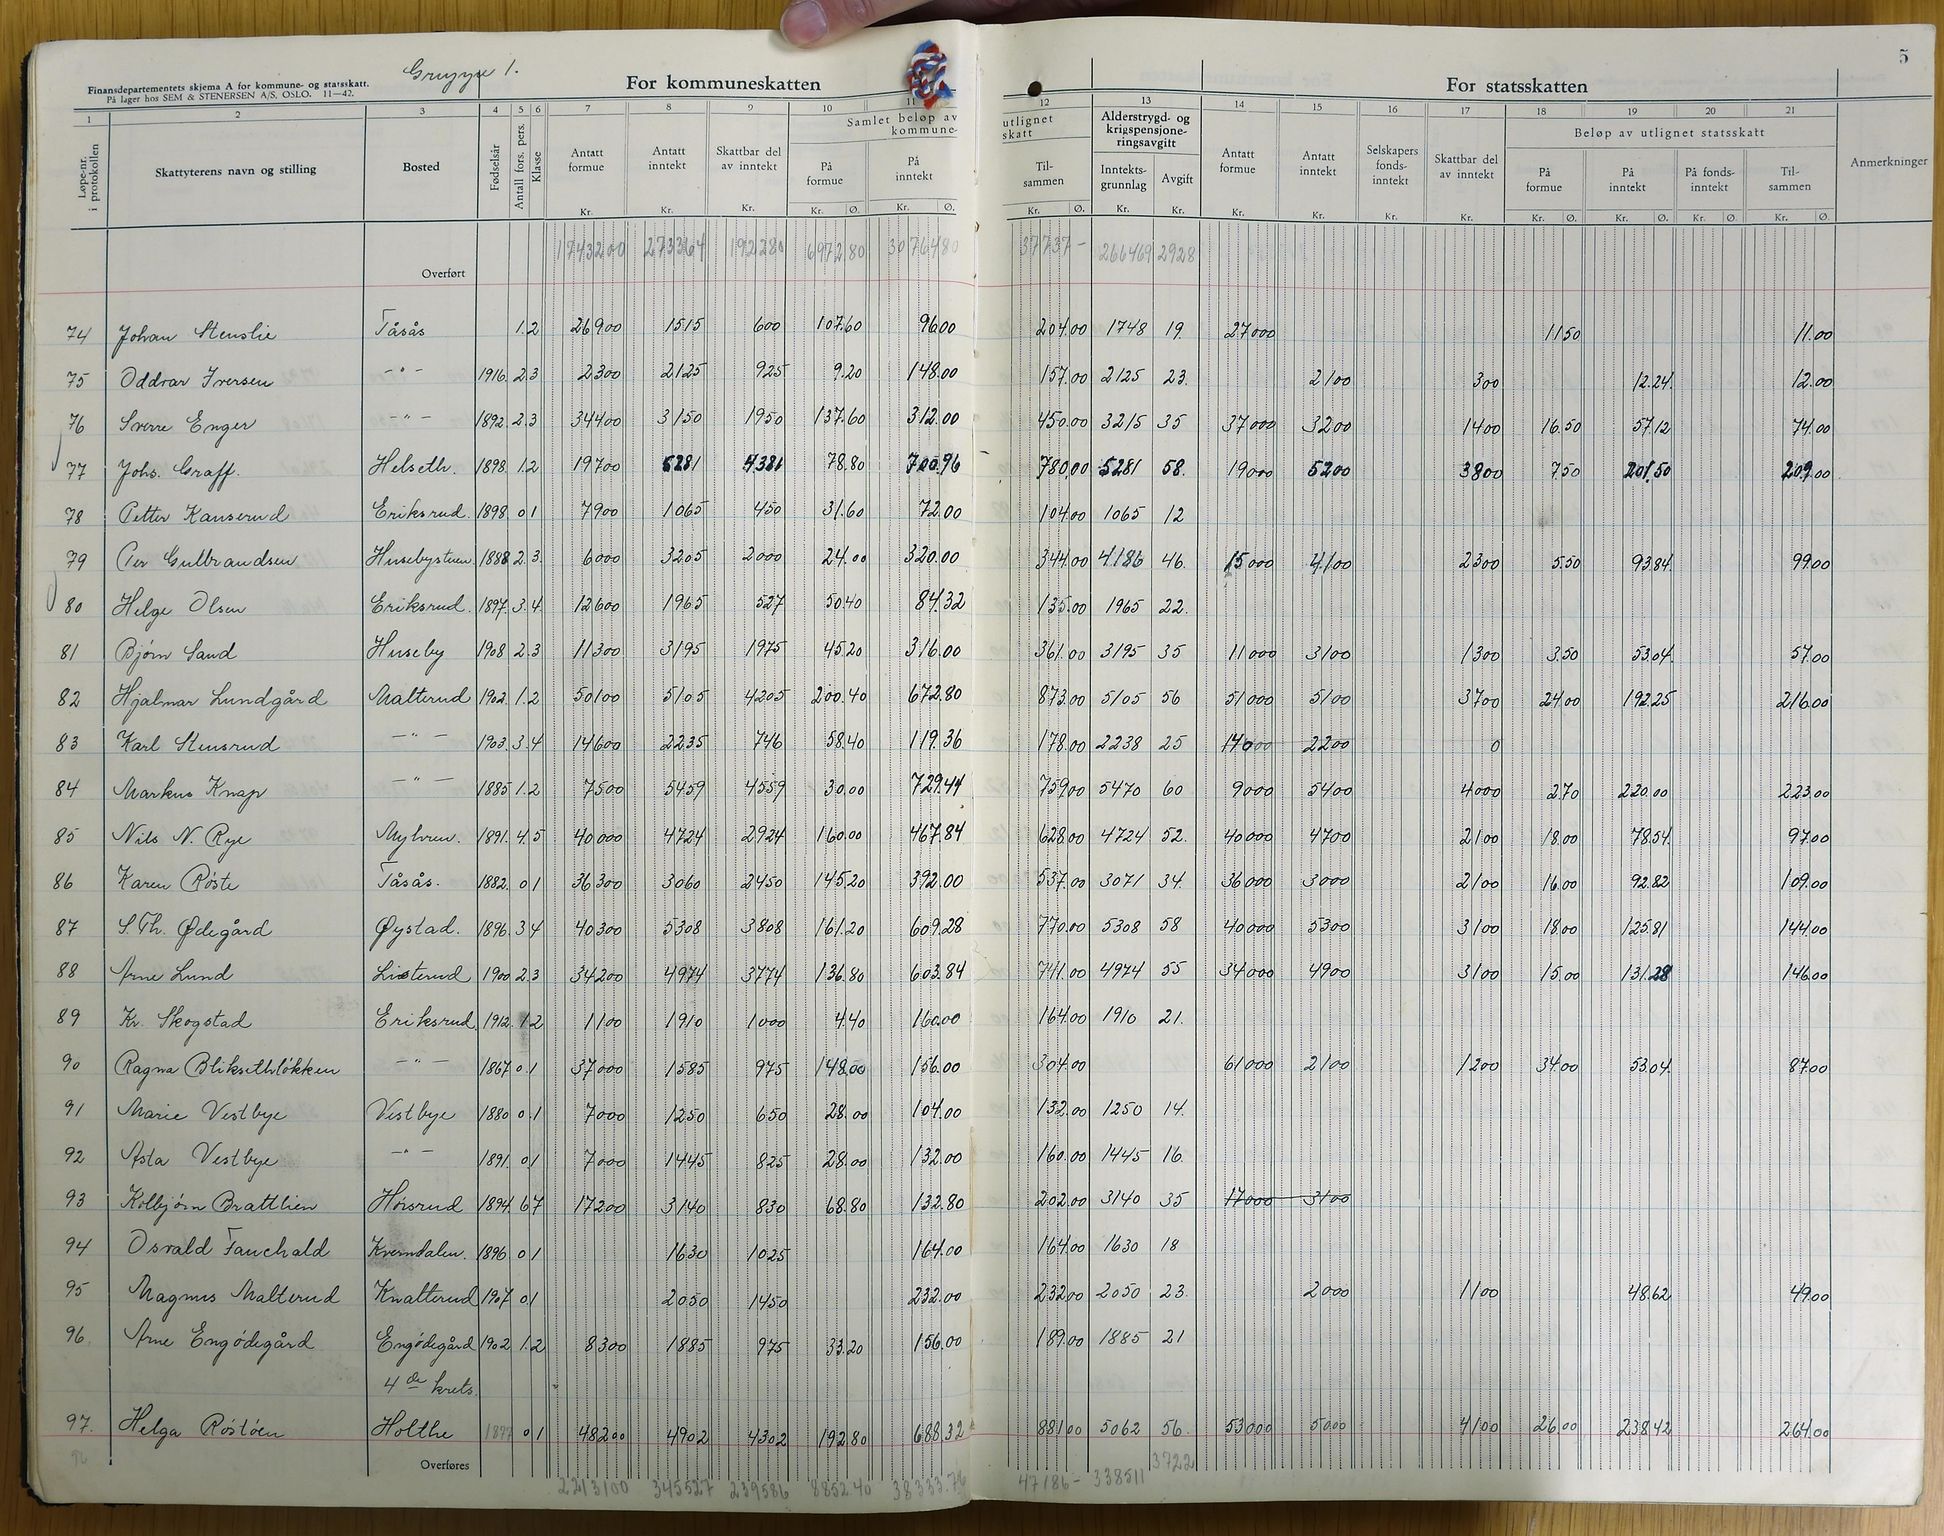 5
Gruppe 1.
Finansdepartementets skjema A for kommune- og statsskatt.
På lager hos SEM & STENERSEN A/S, OSLO. 11—42.
For kommuneskatten
For statsskatten
1 2 3 4 5 6 7 8 9 10 11 12 13 14 15 16 17 18 19 20 21
Samlet beløp av utlignet kommuneskatt
Alderstrygd- og krigspensjoneringsavgift
Beløp av utlignet statsskatt
Løpe-nr. i protokollen
Skattyterens navn og stilling
Bosted
Fødselsår
Antall fors. pers.
Klasse
Antatt formue
Antatt inntekt
Skattbar del av inntekt
På formue
På inntekt
Tilsammen
Inntektsgrunnlag
Avgift
Antatt formue
Antatt inntekt
Selskapers fondsinntekt
Skattbar del av inntekt
På formue
På inntekt
På fondsinntekt
Tilsammen
Anmerkninger
Kr. Kr. Kr. Kr. Ø. Kr. Ø. Kr. Ø. Kr. Kr. Kr. Kr. Kr. Kr. Kr. Ø. Kr. Ø. Kr. Ø. Kr. Ø.
Overført 1743200 273364 192280 6972.80 30764.80 37737- 266469 2928
74 Johan Stenslie Tåsås 1.2 26900 1515 600 107.60 96.00 204.00 1748 19. 27000 11.50 11.00
75 Oddvar Iversen -"- 1916. 2.3 2300 2125 925 9.20 148.00 157.00 2125 23. 2100 300 12.24 12.00
76 Sverre Enger -"- 1892. 2.3 34400 3150 1950 137.60 312.00 450.00 3215 35 37000 3200 1400 16.50 57.12 74.00
77 Johs. Graff. Helseth. 1898. 1.2 19700 5281 4381 78.80 700.96 780.00 5281 58. 19000 5200 3800 7.50 201.50 209.00
78 Petter Kanserud Eriksrud. 1898 0 1 7900 1065 450 31.60 72.00 104.00 1065 12
79 Per Gulbrandsen Husebystuen 1888 2.3. 6000 3205 2000 24.00 320.00 344.00 4186 46. 15000 4100 2300 5.50 93.84 99.00
80 Helge Olsen Eriksrud. 1897. 3.4. 12600 1965 527 50.40 84.32 135.00 1965 22.
81 Bjørn Sand Huseby 1908 2.3 11300 3195 1975 45.20 316.00 361.00 3195 35 11000 3100 1300 3.50 53.04 57.00
82 Hjalmar Lundgård Malterud 1902. 1.2 50100 5105 4205 200.40 672.80 873.00 5105 56 51000 5100 3700 24.00 192.25 216.00
83 Karl Stensrud -"- 1903. 3.4 14600 2235 746 58.40 119.36 178.00 2238 25 14000 2200 0
84 Markus Knap -"- 1885 1.2 7500 5459 4559 30.00 729.44 759.00 5470 60 9000 5400 4000 2.70 220.00 223.00
85 Nils N. Rye Myhren. 1891. 4.5 40000 4724 2924 160.00 467.84 628.00 4724 52. 40000 4700 2100 18.00 78.54 97.00
86 Karen Røste Tåsås. 1882. 0 1 36300 3060 2450 145.20 392.00 537.00 3071 34. 36000 3000 2100 16.00 92.82 109.00
87 S. Th. Ødegård Øystad. 1896. 3 4 40300 5308 3808 161.20 609.28 770.00 5308 58 40000 5300 3100 18.00 125.81 144.00
88 Arne Lund Linsterud 1900 2.3 34200 4974 3774 136.80 603.84 741.00 4974 55 34000 4900 3100 15.00 131.28 146.00
89 Kr. Skogstad Eriksrud 1912. 1 2 1100 1910 1000 4.40 160.00 164.00 1910 21.
90 Ragna Bliksethløkken -"- 1867 0.1 37000 1585 975 148.00 156.00 304.00 61000 2100 1200 34.00 53.04 87.00
91 Marie Vestbye Vestbye 1880 0.1 7000 1250 650 28.00 104.00 132.00 1250 14.
92 Asta Vestbye -"- 1891. 0.1 7000 1445 825 28.00 132.00 160.00 1445 16.
93 Kolbjørn Brattlien Hørsrud 1894. 6 7 17200 3140 830 68.80 132.80 202.00 3140 35 17000 3100
94 Osvald Fauchald Kverndalen. 1896 0 1 1630 1025 164.00 164.00 1630 18
95 Magnus Malterud Knatterud 1907 0.1 2050 1450 232.00 232.00 2050 23. 2000 1100 48.62 49.00
96. Arne Engødegård Engødegård 1902 1.2 8300 1885 975 33.20 156.00 189.00 1885 21
4de krets.
97. Helga Røstøen Holthe 1897 0 1 48200 4902 4302 192.80 688.32 881.00 5062 56. 53000 5000 4100 26.00 238.42 264.00
96 Overføres 2213100 345527 239586 8852.40 38333.76 47186- 338511 3722